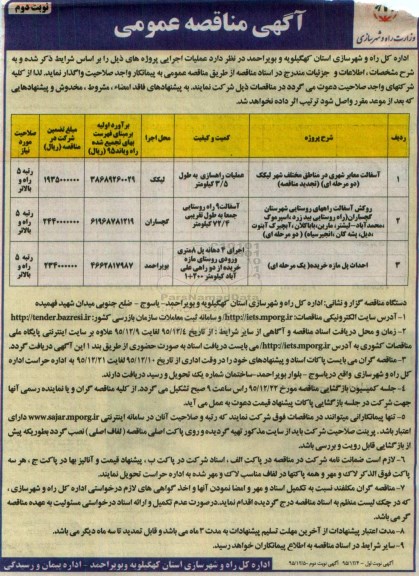 نوبت دوم
آگهی مناقصه عمومی
وزارت راه و شهرسازی
اداره کل راه و شهرسازی استان کهگیلویه و بویراحمد در نظر دارد عملیات اجرایی پروژه های ذیل را بر اساس شرایط ذکر شده و به
شرح مشخصات ، اطلاعات و جزئیات مندرج در اسناد مناقصه از طریق مناقصه عمومی به پیمانکار واجد صلاحیت واگذار نماید. لذا از کلیه
شرکتهای واجد صلاحیت دعوت می گردد در مناقصات ذیل شرکت نمایند. به پیشنهادهای فاقد امضاء ، مشروط ، مخدوش و پیشنهادهایی
که بعد از موعد مقرر واصل شود ترتیب اثر داده نخواهد شد.
ردیف | شرح پروژه | کمیت و کیفیت | محل اجرا | برآورد اولیه برمبنای فهرست بهای تجمیع شده راه وباند۹۵ (ریال) | مبلغ تضمین شرکت در مناقصه (ریال) | صلاحیت مورد نیاز
۱ | آسفالت معابر شهری در مناطق مختلف شهر لیکک (دو مرحله ای) (تجدید مناقصه) | عملیات راهسازی به طول ۳/۵ کیلومتر | لیکک | ۳۸۶۸۹۲۶۰۰۲۹ | ۱۹۳۵۰۰۰۰۰۰ | رتبه ۵ راه و بالاتر
۲ | روکش آسفالت راههای روستایی شهرستان گچساران(راه روستایی بید زرد ،اسپرموک ،محمدآباد-لیشتر، مارین،باباکلان،آبچیرک آبنوت ،دیل، پشه کان ،انجیرسیاه) ( دو مرحله ای) | آسفالت۹ راه روستایی جمعا به طول تقریبی ۷۲/۴ کیلومتر | گچساران | ۶۱۹۶۸۷۸۱۲۱۹ | ۲۴۴۰۰۰۰۰۰۰ | رتبه ۵ راه و بالاتر
۳ | احداث پل مازه خریده( یک مرحله ای) | اجرای ۴ دهانه پل ۸متری ورودی روستای مازه خریده از دو راهی علی آباد کیلومتر ۲۰۰+۱ | بویراحمد | ۴۶۶۲۸۱۷۹۸۷ | ۲۳۴۰۰۰۰۰۰ | رتبه ۵ راه و بالاتر
دستگاه مناقصه گزار و نشانی: اداره کل راه و شهرسازی استان کهگیلویه و بویراحمد - یاسوج - ضلع جنوبی میدان شهید فهمیده
۱- آدرس سایت الکترونیکی مناقصات: http://iets.mporg.ir/ و سامانه ثبت معاملات سازمان بازرسی کشور: http://tender.bazresi.ir
۲- زمان و محل دریافت اسناد مناقصه و آگاهی از سایر شرایط : از تاریخ ۹۵/۱۲/۴ لغایت ۹۵/۱۲/۹ علاوه بر سایت اینترنتی پایگاه ملی
مناقصات کشوری به آدرس http://iets.mporg.ir/ می بایست دریافت اسناد به صورت حضوری از طریق بند ۱ این آگهی دریافت گردد.
۳- مناقصه گران می بایست پاکات اسناد و پیشنهادهای خود را در وقت اداری از تاریخ ۹۵/۱۲/۱۰ لغایت ۹۵/۱۲/۲۱ به اداره حراست اداره
کل راه و شهرسازی واقع دریاسوج - بلوار بویراحمد-ساختمان شماره یک تحویل و رسید دریافت دارند.
۴- جلسه کمیسیون بازگشایی مناقصه مورخ ۹۵/۱۲/۲۲ راس ساعت ۹ صبح تشکیل می گردد. از کلیه مناقصه گران و یا نماینده رسمی آنها
جهت شرکت در جلسه بازگشایی پاکات پیشنهاد قیمت دعوت به عمل می آید.
۵- تنها پیمانکارانی میتوانند در مناقصات فوق شرکت نمایند که رتبه و صلاحیت آنان در سامانه اینترنتی www.sajar.mporg.ir دارای
اعتبار باشد. پرینت صلاحیت شرکت باید از سایت مذکور تهیه گردیده و روی پاکت اصلی مناقصه (لفاف اصلی ) نصب گردد بطوریکه پیش
از بازگشایی قابل رویت و بررسی باشد.
۶- لازم است ضمانت نامه شرکت در مناقصه در پاکت الف ، اسناد شرکت در پاکت ب ، پیشنهاد قیمت و آنالیز بها در پاکت ج ، هر سه
پاکت فوق الذکر لاک و مهر و همه پاکتها در لفاف مناسب لاک و مهر شده به اداره حراست تحویل نمایند.
۷- مناقصه گران مکلفند نسبت به تکمیل اسناد و مهر و امضا نمودن آنها و اخذ گواهی های لازم درخواستی اداره کل راه و شهرسازی ،
که در چک لیست منظم به اسناد مناقصه درج گردیده اقدام نمایند.درصورت عدم تکمیل و ارائه اسناد درخواستی مسئولیت به عهده مناقصه
گر می باشد.
۸- مدت اعتبار پیشنهادات از آخرین مهلت تسلیم پیشنهادات به مدت ۳ ماه می باشد و قابل تمدید تا سه ماه دیگر می باشد.
۹- سایر شرایط در اسناد مناقصه به اطلاع پیمانکاران خواهد رسید.
آگهی نوبت اول - ۹۵/۱۲/۴ آگهی نوبت دوم -۹۵/۱۲/۵
اداره کل راه و شهرسازی استان کهگیلویه وبویراحمد - اداره پیمان و رسیدگی